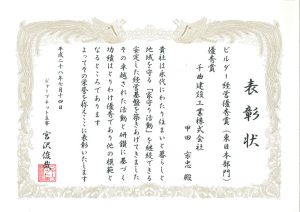 表彰状
ビルダー経営優秀賞(東日本部門)
優秀賞
千曲建設工業株式会社
甲田 宏忠 殿
貴社は永代にわたり住まいと暮らしと
地域を守る「家守り活動」を継続できる
安定した経営基盤を築きあげてきました
その卓越された活動と研鑽に基づく
功績はとりわけ優秀であり他の模範と
なるところであります
よってその栄誉を称えここに表彰いたします
平成二十八年七月十四日
ジャーブネット主宰
宮沢俊哉